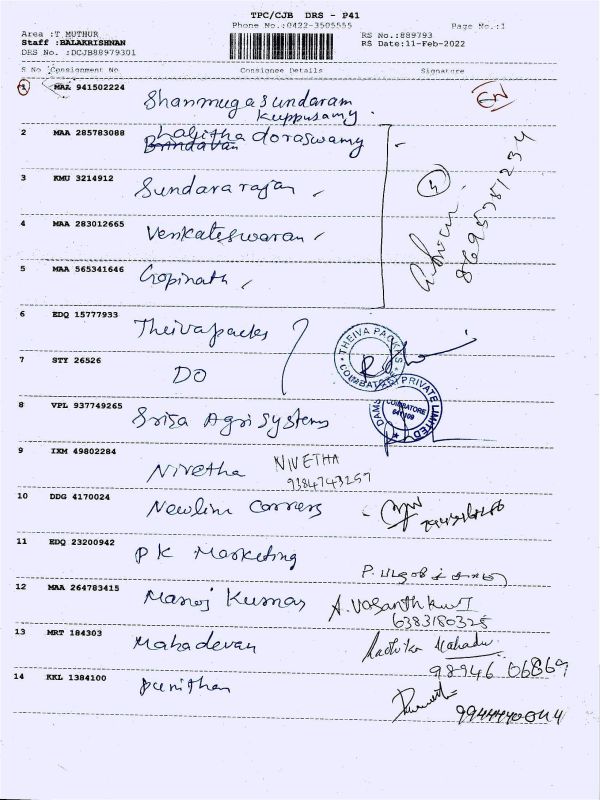 TPC/CJB DRS - P41
Phone No.:0422-3505555
Page No.:1
Area :T MUTHUR
Staff :BALAKRISHNAN
DRS No. :DCJB88979301
RS No.:889793
RS Date:11-Feb-2022
S No Consignment No Consignee Details Signature
1 MAZ 941502224 Shanmugasundaram
Kuppusamy.
2 MAA 285783088 Lalitha doraswamy
3 KMU 3214912 Sundararajan
4 MAA 283012665 Venkateswaran
5 MAA 565341646 Gopinath
5
8695781234
6 EDQ 15777933 Theivapacks
THEIVA PACKS
COIMBATORE
7 STY 26526 DO
8 VPL 937749265 Srisa Agri Systems
PRIVATE LIMITED
COIMBATORE
9 IXM 49802284 Nivetha NIVETHA
9384743257
10 DDG 4170024 Newlim Corners
11 EDQ 23200942 PK Marketing
12 MAA 264783415 Manoj Kumar A. Vasanthkum
6383180325
13 MRT 184303 Mahadevan Radhika Mahadev
98946 06869
14 KKL 1384100 Punithan
9944440044